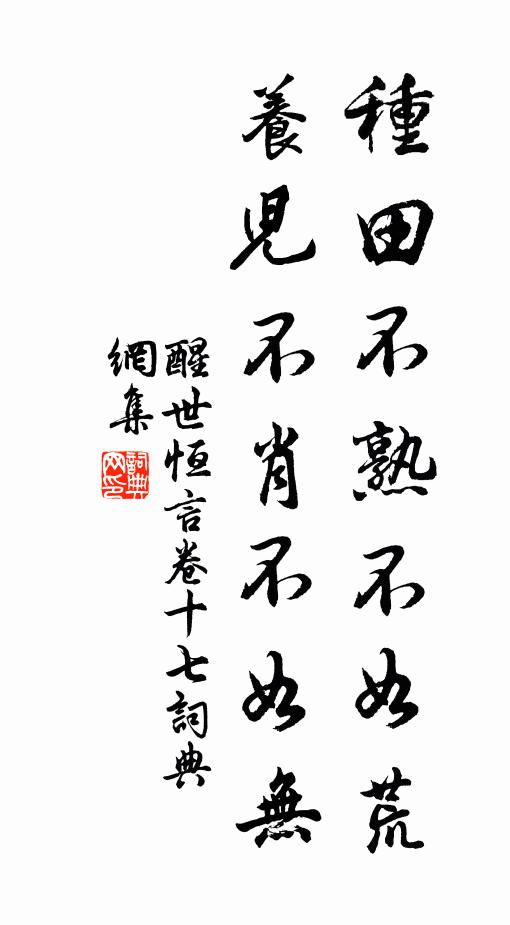 種田不熟不如荒
養児不肖不如無
醒世恒言卷十七詞典
網集
詞典网印